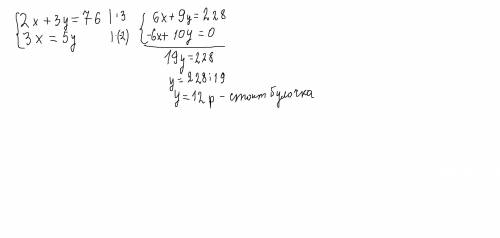 {2x + 3y = 76 | · 3 {6x + 9y = 228
{3x = 5y | (2) {-6x + 10y = 0
19y = 228
y = 228 : 19
y = 12 р - стоит булочка